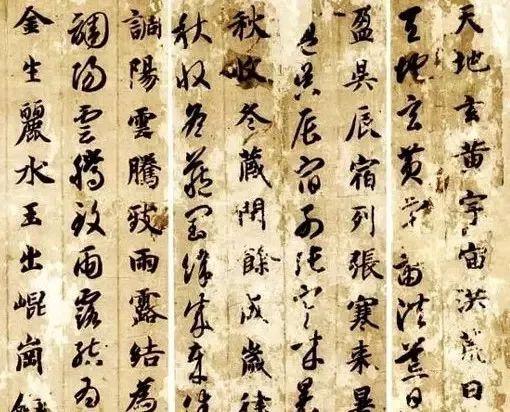 天地玄黄宇宙洪荒日
天地玄黄宇宙洪荒日
盈昃辰宿列張寒来暑
盈昃辰宿列張寒来暑
秋收冬藏閏餘成歳律
秋收冬藏閏餘成歳律
調陽雲騰致雨露結為
調陽雲騰致雨露結為
金生麗水玉出崐崗